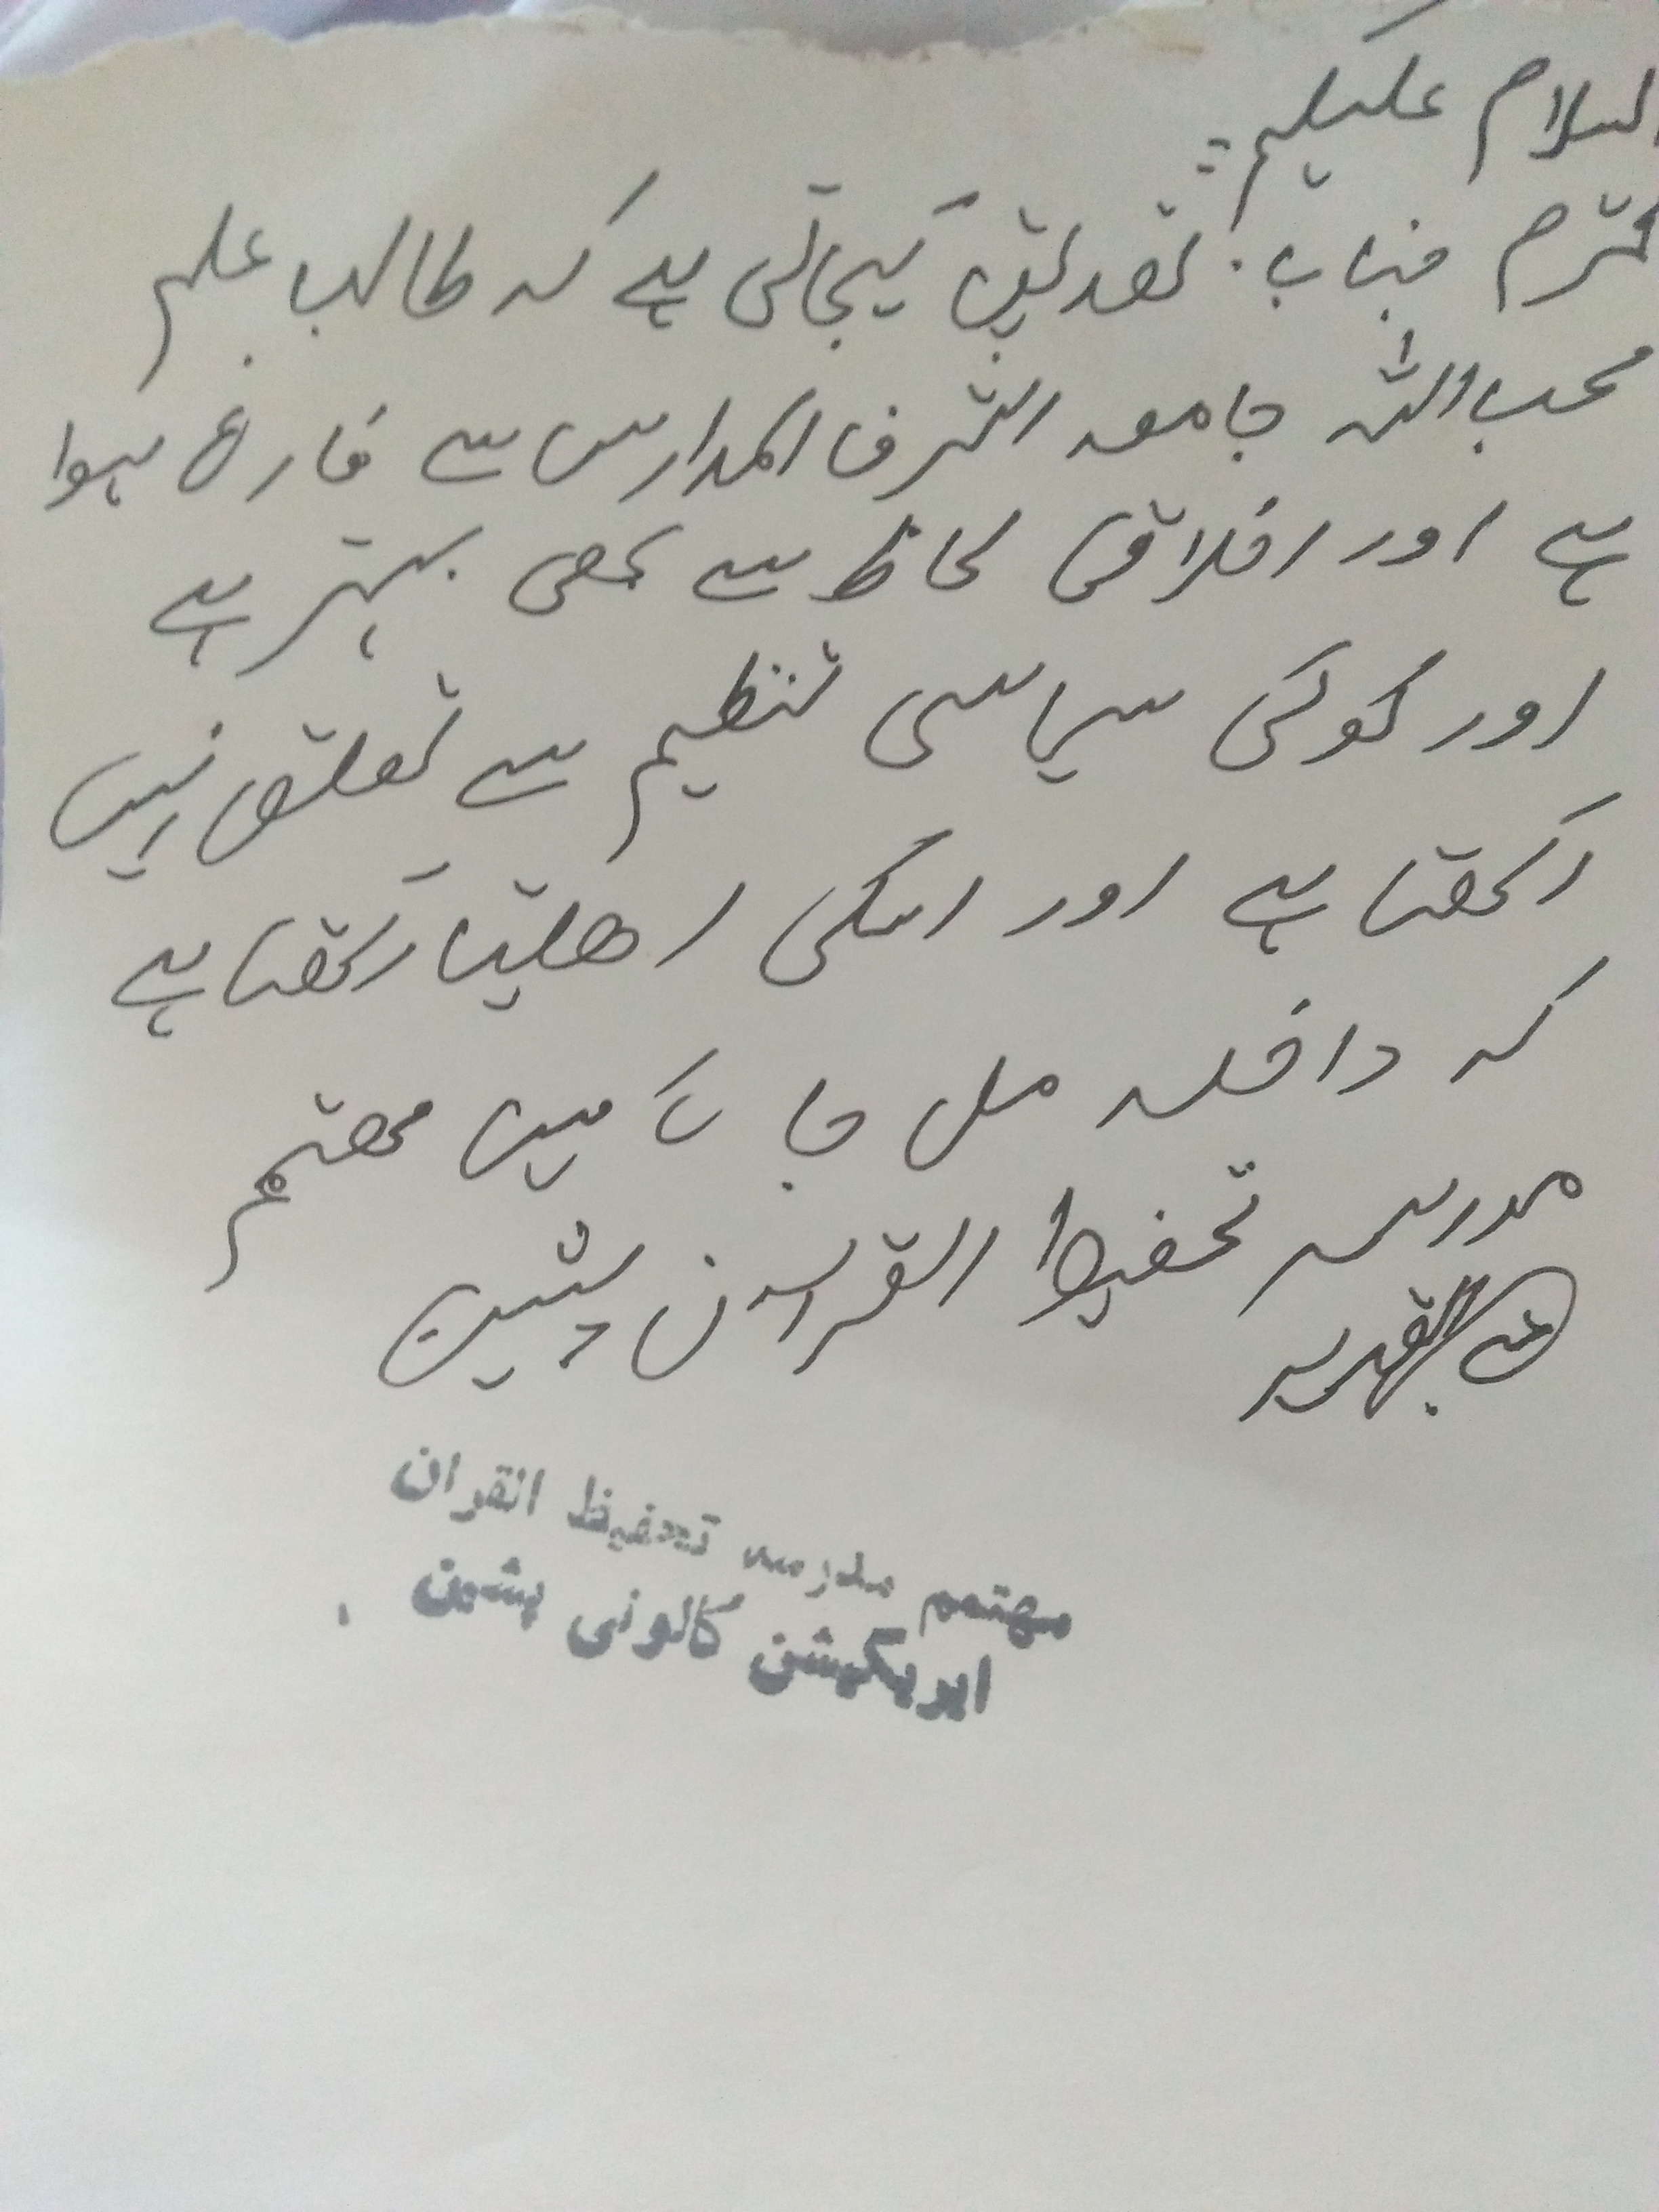 السلام علیکم:
محترم جناب. تصدیق کیجاتی ہے کہ طالب علم
محب اللہ جامعہ اشرف المدارس سے فارغ ہوا
ہے اور اخلاقی لحاظ سے بھی بہتر ہے
اور کوئی سیاسی تنظیم سے تعلق نہیں
رکھتا ہے اور اسکی اھلیت رکھتا ہے
کہ داخلہ مل جائے میں مھتمم
مدرسہ تحفیظ القرآن پشین
مہتمم مدرسہ تحفیظ القران
ایریگیشن کالونی پشین